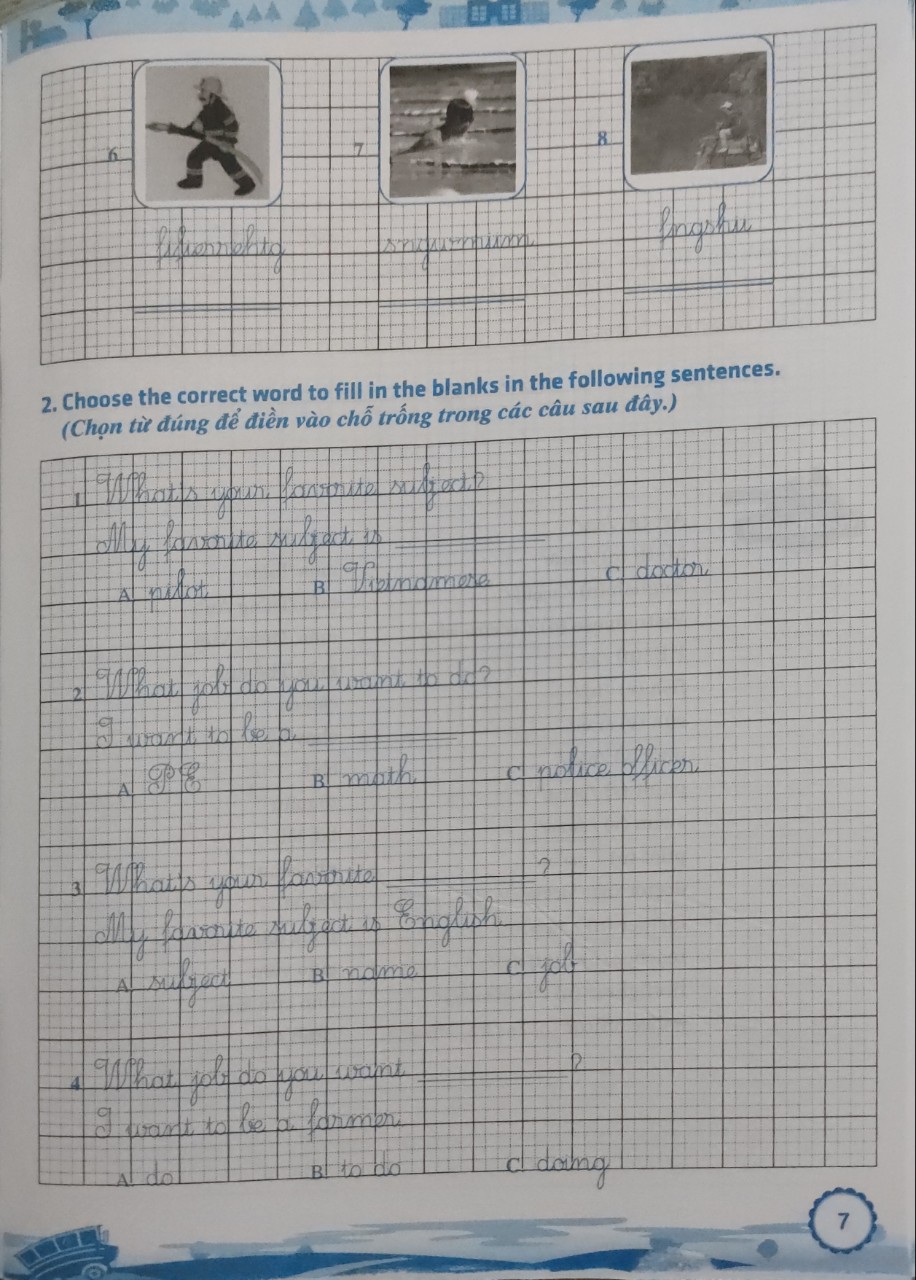 6 7 8
fifierrehtg snguwmuim fingshu
2. Choose the correct word to fill in the blanks in the following sentences.
(Chọn từ đúng để điền vào chỗ trống trong các câu sau đây.)
1 What's your favorite subject?
My favorite subject is
A pilot B Vietnamese C doctor
2 What job do you want to do?
I want to be a
A PE B math C police officer
3 What's your favorite ?
My favorite subject is English
A subject B name C job
4 What job do you want ?
I want to be a farmer
A do B to do C doing
7